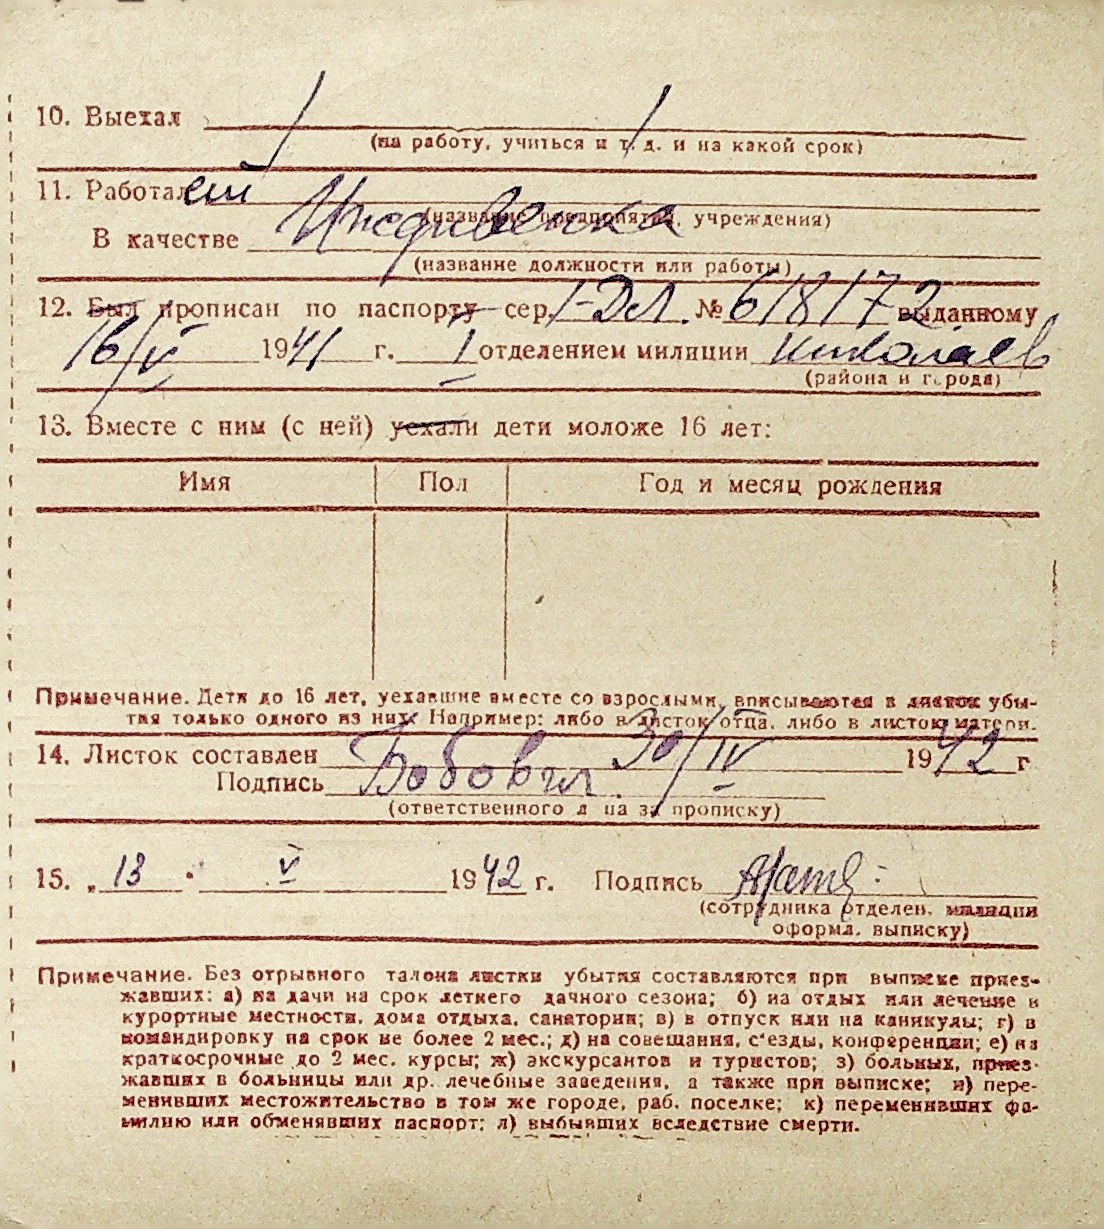 10. Выехал
(на работу, учиться и т. д. и на какой срок)
11. Работал
(название предприятия, учреждения)
В качестве Иждивенка
(название должности или работы)
12. Был прописан по паспорту сер. I-ДЛ № 618172 выданному
16/V 1941 г. I отделением милиции Николаев
(района и города)
13. Вместе с ним (с ней) уехали дети моложе 16 лет:
Имя Пол Год и месяц рождения
Примечание. Дети до 16 лет, уехавшие вместе со взрослыми, вписываются в листок убы-
тия только одного из них. Например: либо в листок отца, либо в листок матери.
14. Листок составлен 30/IV 1942 г
Подпись
(ответственного л ца за прописку)
15. „ 13 " V 1942 г. Подпись
(сотрудника отделен. милиции
оформл. выписку)
Примечание. Без отрывного талона листки убытия составляются при выписке приез-
жавших: а) на дачи на срок летнего дачного сезона; б) на отдых или лечение в
курортные местности, дома отдыха, санатории; в) в отпуск или на каникулы; г) в
командировку на срок не более 2 мес.; д) на совещания, с'езды, конференции; е) на
краткосрочные до 2 мес. курсы; ж) экскурсантов и туристов; з) больных, приез-
жавших в больницы или др. лечебные заведения, а также при выписке; и) пере-
менивших местожительство в том же городе, раб. поселке; к) переменивших фа-
милию или обменявших паспорт; л) выбывших вследствие смерти.